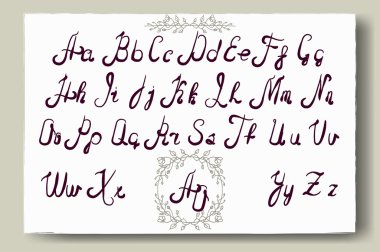 Aa Bb Cc Dd Ee Ff Gg
Hh Ii Jj Kk Ll Mm Nn
Oo Pp Qq Rr Ss Tt Uu Vv
Ww Xx Aa Yy Zz